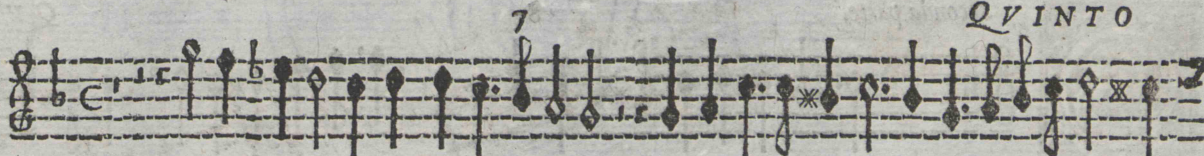 7
QVINTO